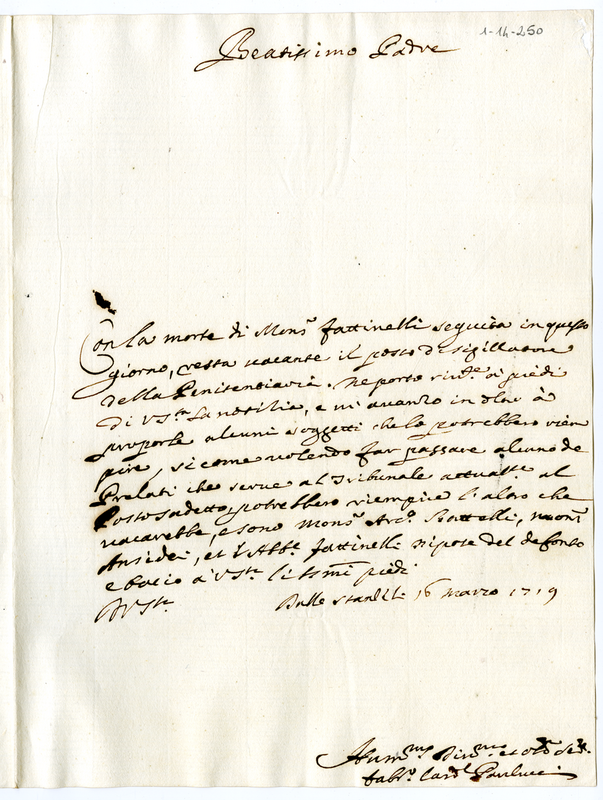 1-14-250
Beatissimo Padre
Con la morte di Mons.r Fattinelli seguita in questo
giorno, resta vacante il posto di sigillatore
della Penitentiaria. Ne porto riv.te a piedi
di V. S.tà la notitia, e mi avanzo in oltre à
proporle alcuni soggetti che lo potrebbero riem
pire, si come volendo far passare alcuno de
Prelati che serve al Tribunale attual.te al
Posto sudetto, potrebbero riempire l'altro che
vacarebbe, e sono Mons.r Arc.o Battelli, Mons.r
Ansidei, et l'Abb.e Fattinelli nipote del defonto
e bacio à V. S.tà li S.mi piedi
Di V. S.tà
Dalle stanze li 16 marzo 1719
Hum.mo Div.mo et ob.mo Ser.
Fabr.o Card.l Paulucci